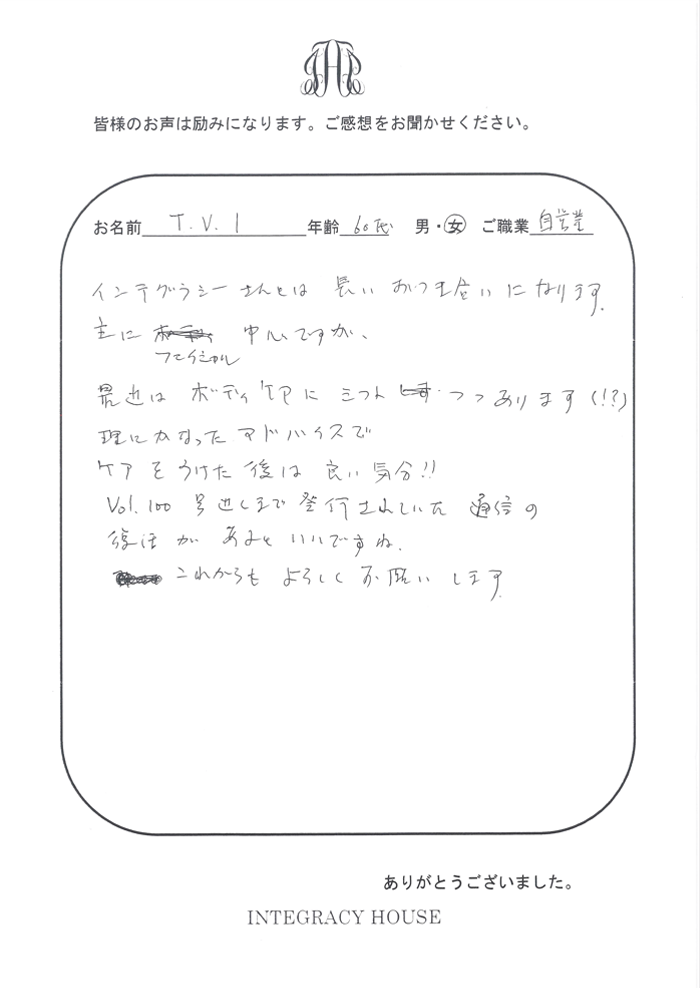 皆様のお声は励みになります。ご感想をお聞かせください。
お名前 T.V.I 年齢 60代 男・女 ご職業 自営業
インテグラシーさんとは 長い おつき合いになります。
主に フェイシャル 中心ですが、
最近は ボディケアに シフト しつつあります(!?)
理にかなったアドバイスで
ケアをうけた後は 良い気分!!
Vol.100 号近くまで 発行されていた 通信の
復活が あるといいですね。
これからも よろしく お願いします。
ありがとうございました。
INTEGRACY HOUSE